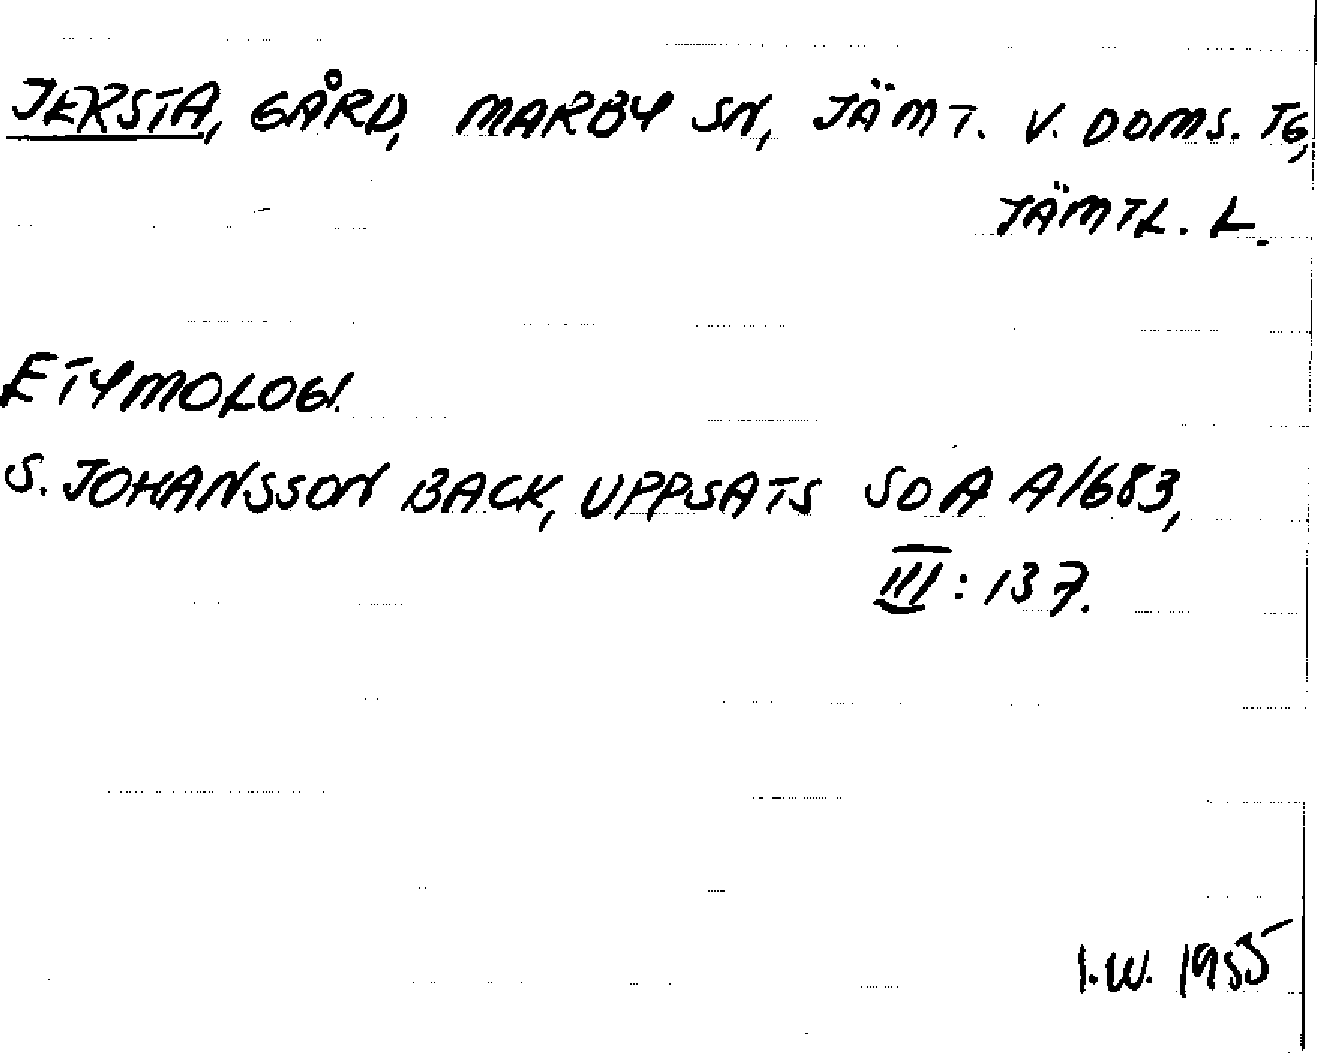 JERSTA, GÅRD, MARBY SN, JÄMT. V. DOMS. TG,
JÄMTL. L.
ETYMOLOGI.
S. JOHANSSON BACK, UPPSATS SOA A/683,
III: 137.
I.W. 1955